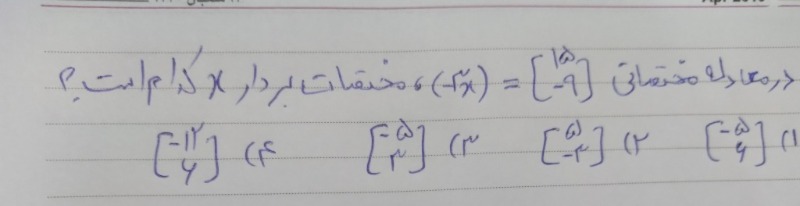 در معادله مختصاتی [۱۵ -۹] = (-۳x)، مختصات بردار x کدام است؟
۱) [-۵ ۶] ۲) [۵ -۳] ۳) [-۵ ۳] ۴) [-۱۲ ۶]